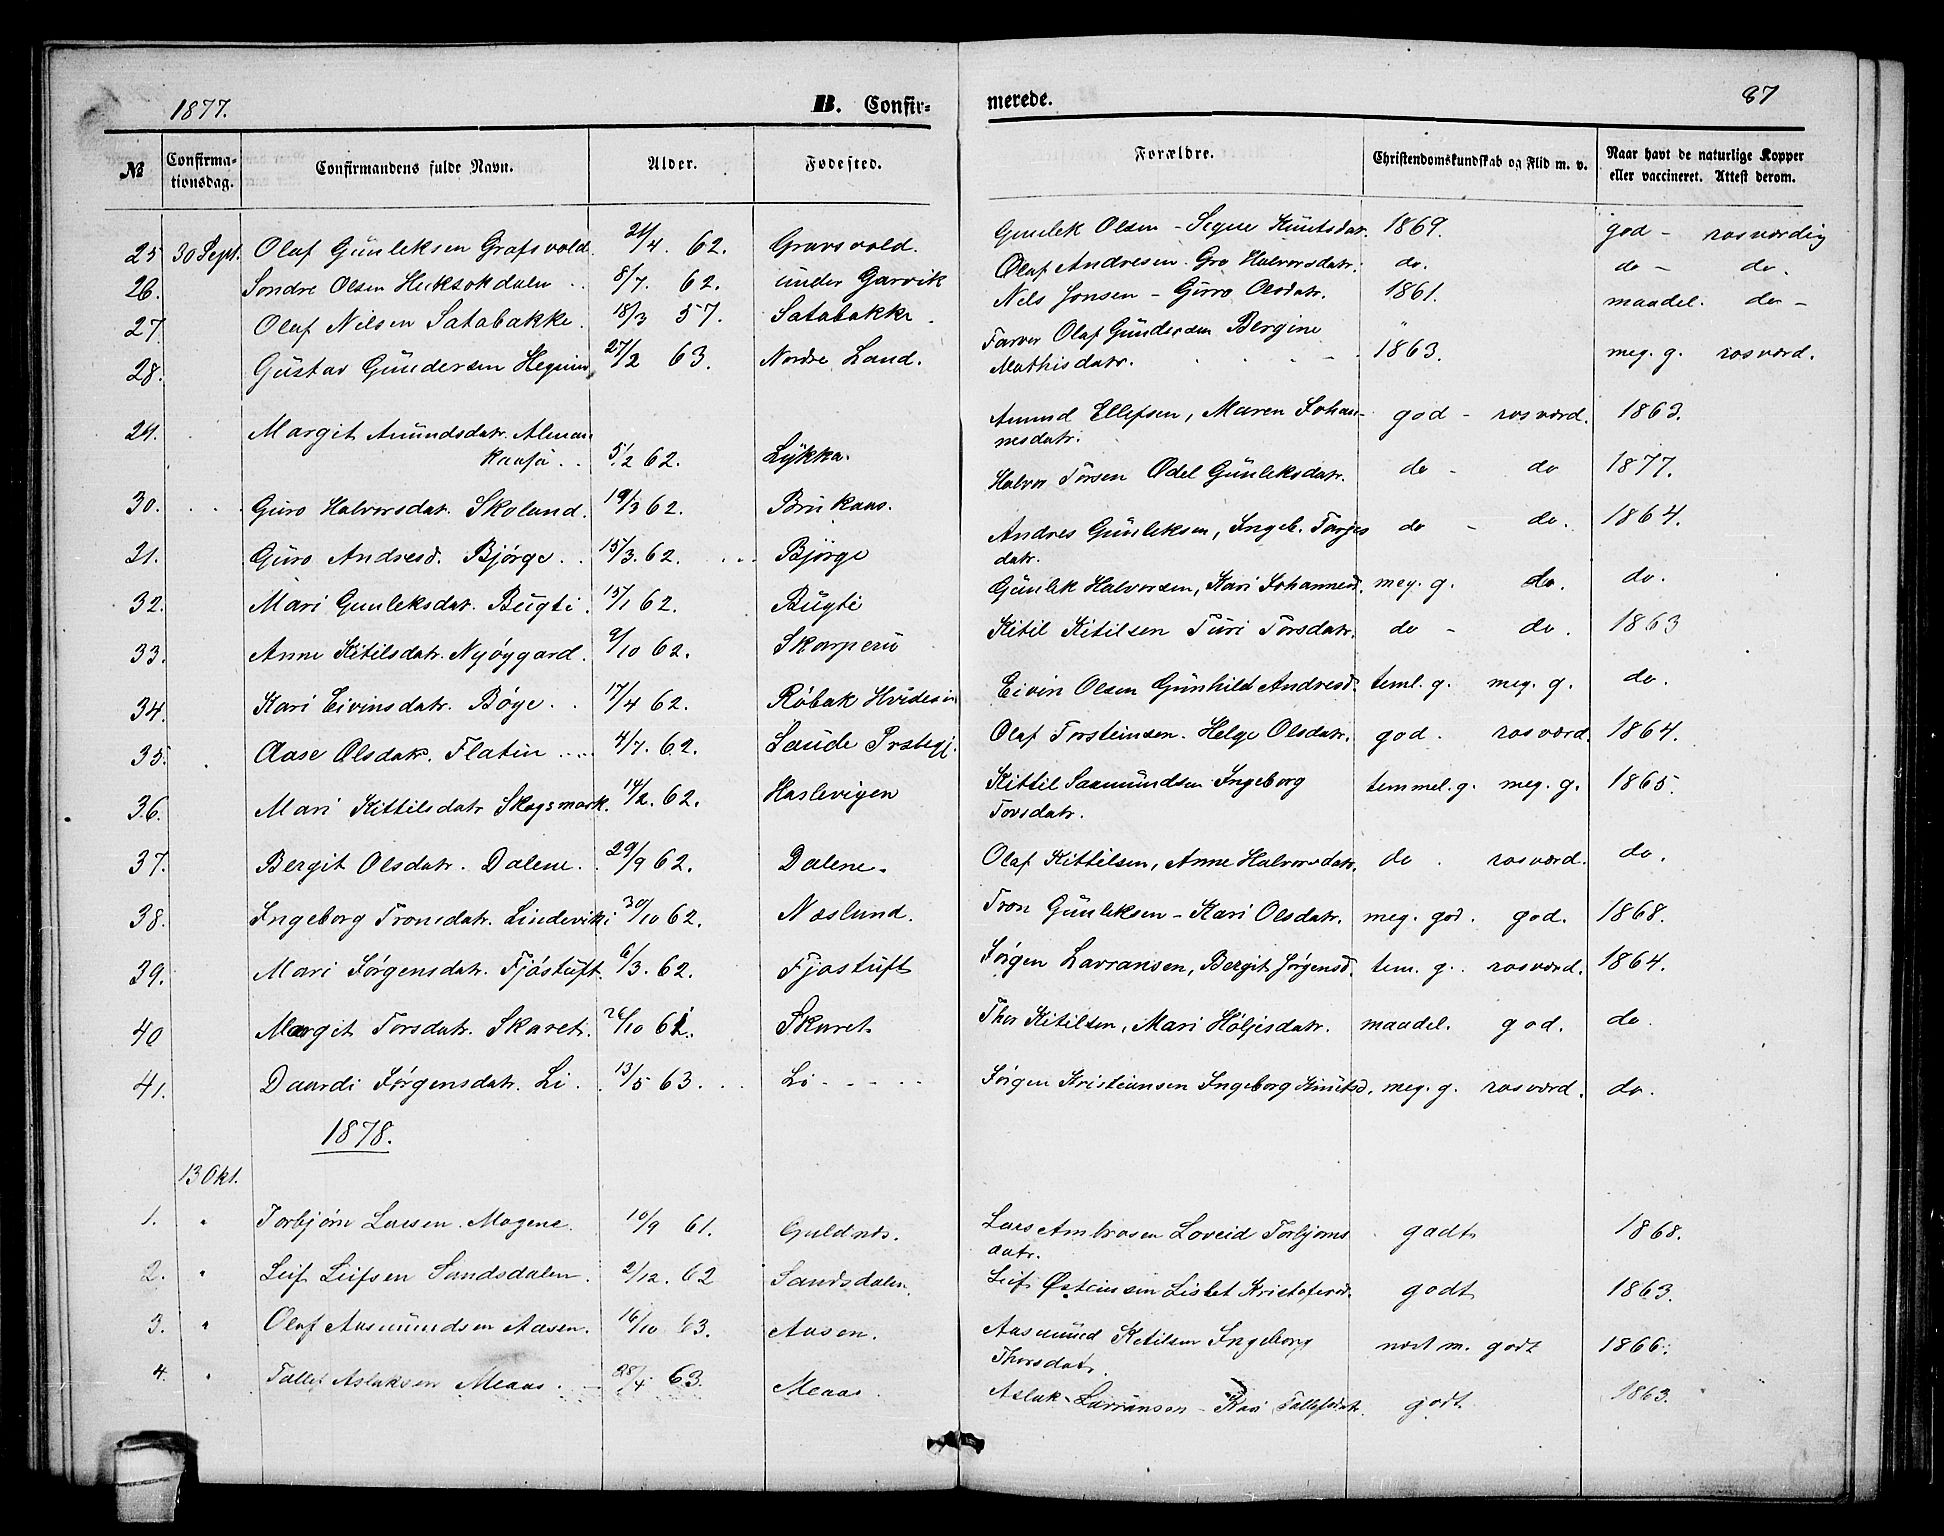 1877.
B. Confir-
merede.
87
№
Confirma-
tionsdag.
Confirmandens fulde Navn.
Alder.
Fødested.
Forældre.
Christendomskundskab og Flid m. v.
Naar havt de naturlige Kopper
eller vaccineret. Attest derom.
25 30 Sept. Olaf Gunleksen Grafsvold. /4. 62. Gravsvold. Gunlek Olsen - Signe Knutsdar. 1869. god - rosværdig
26. Sondre Olsen Heksokdalen 8/7. 62. under Garvik Olaf Andresen. Gro Halvorsdatr. do. do - do.
27. Olaf Nilsen Satabakke. 18/3 57. Satabakke. Nils Jonsen - Guro Olsdatr. 1861. maadel. do -
28. Gustav Gundersen 27/2 63. Nordre Land. Farver Olaf Gundersen Bergine
Mathisdatr. 1863. meg. g. rosværd.
29. Margit Amundsdatr.
5/2 62. Lykkja. Amund Ellefsen, Maren Johan-
nesdatr. god - rosværd. 1863.
30. Guro Halvorsdatr. Skoland. 19/3 62. Brukaas. Halvor Torsen Odel Gunleksdatr. do - do 1877.
31. Guro Andresd. Bjørge. 15/3. 62. Bjørge Andres Gunleksen, Ingeb. Torjes
datr. do - do. 1864.
32. Mari Gunleksdatr. Bugti. 15/1 62. Bugti Gunlek Halvorsen, Kari Johannesd. meg. g. do. do.
33. Anne Kitilsdatr. Nyøygard. 9/10 62. Skarperu Kitil Kitilsen Turi Torsdatr. do - do. 1863
34. Kari Eivinsdatr. Bøye. 17/4 62. Røbak Hvidesin Eivin Olsen Gunhild Andresd. teml. g. meg. g. do.
35. Aase Olsdatr. Flatin 4/7. 62. Saude Prstegj. Olaf Torsteinsen. Helge Olsdatr. god. rosværd. 1864.
36. Mari Kittilsdatr Skogsmark. 14/2. 62. Haslevigen Kittil Saamundsen Ingeborg
Torsdatr. temmel. g. meg. g. 1865.
37. Bergit Olsdatr. Dalene. 29/9 62. Dalene. Olaf Kittilsen, Anne Halvorsdatr. do. rosværd. do.
38. Ingeborg Tronsdatr. Lindeviki 30/10 62. Næslund. Tron Gunleksen - Kari Olsdatr. meg. god. god. 1868.
39. Mari Jørgensdatr. Fjøstuft 6/3. 62. Fjøstuft Jørgen Lavransen, Bergit Jørgensd. tem. g. rosværd. 1864.
40 Margit Torsdatr. Skaret. 26/10 61. Skaret Thor Kitilsen, Mari Høljesdatr. maadel. god. do
41. Daardi Jørgensdatr. Li. 13/5 63. Li Jørgen Kristiansen Ingeborg Knutsd. meg. g. rosværd. do.
1878.
13 Okt.
1. " Torbjørn Larsen. Mogene. 10/9 61. Guldnes. Lars Ambrosen Loveid Torbjørns
datr. godt 1868.
2. " Leif Leifsen Sandsdalen. 2/12. 62 Sandsdalen Leif Østeinsen Lisbet Kristofersd. godt 1863.
3. " Olaf Aasmundsen Aasen. 16/10 63. Aasen. Aasmund Ketilsen Ingeborg
Thorsdatr. nost m. godt 1866.
4. " Tallef Aslaksen Meaas. 28/4 63. Meaas. Aslak Lavransen - Kari Tallefsdatr. godt. 1863.